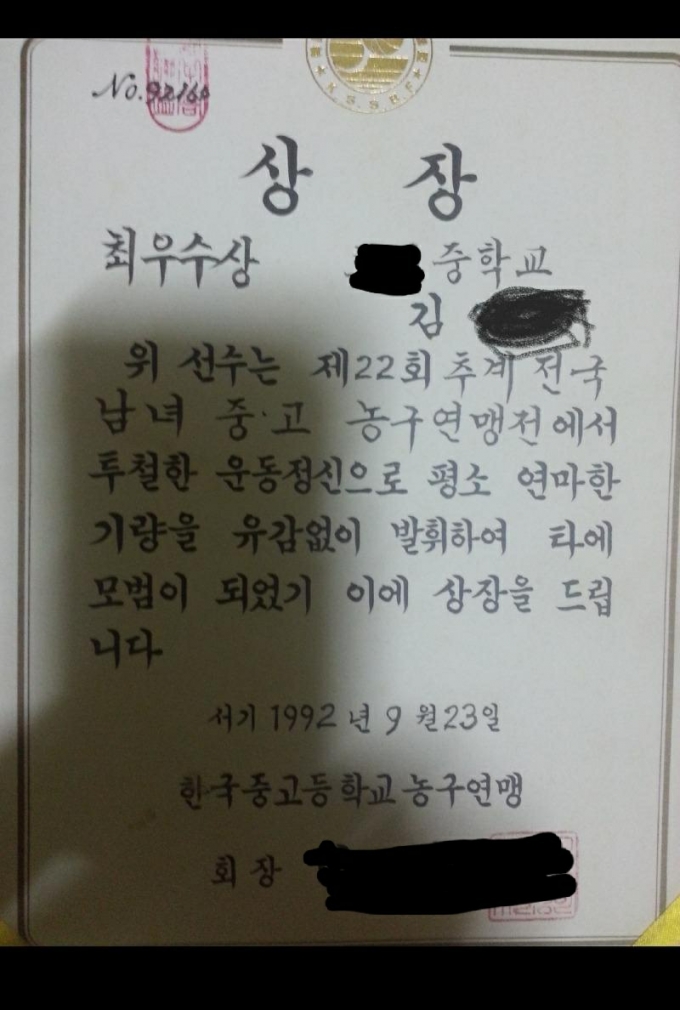 No. 92160
K.S.S.B.F
상 장
최우수상 중학교
김
위 선수는 제22회 추계 전국
남녀 중·고 농구연맹전에서
투철한 운동정신으로 평소 연마한
기량을 유감없이 발휘하여 타에
모범이 되었기 이에 상장을 드립
니다
서기 1992년 9월 23일
한국중고등학교농구연맹
회장